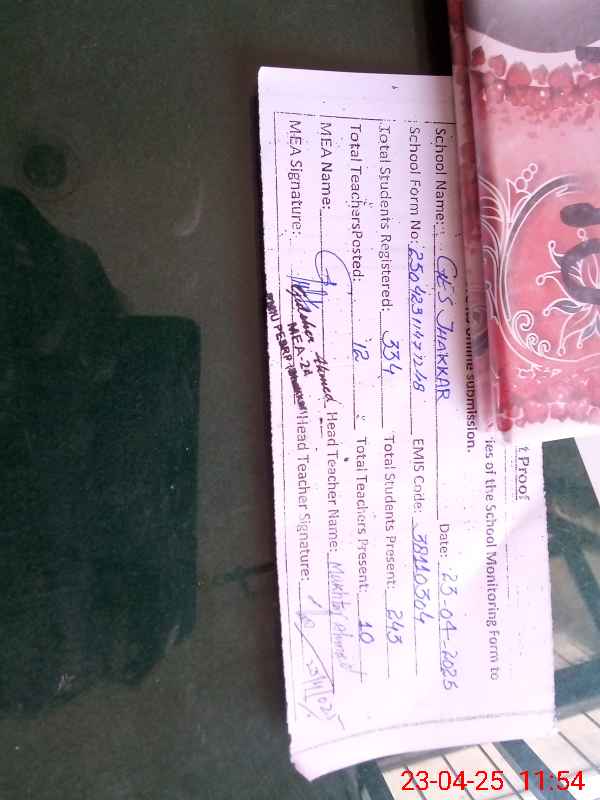 t Proof
ies of the School Monitoring Form to
online submission.
School Name: GES JHAKKAR Date: 23-04-2025
School Form No: EMIS Code: 38110304
Total Students Registered: 334 Total Students Present: 243
Total TeachersPosted: 12 Total Teachers Present: 10
MEA Name: Ahmed Head Teacher Name: Mukhtar Ahmed
MEA Signature: MEA-2A Head Teacher Signature:
23-04-25 11:54